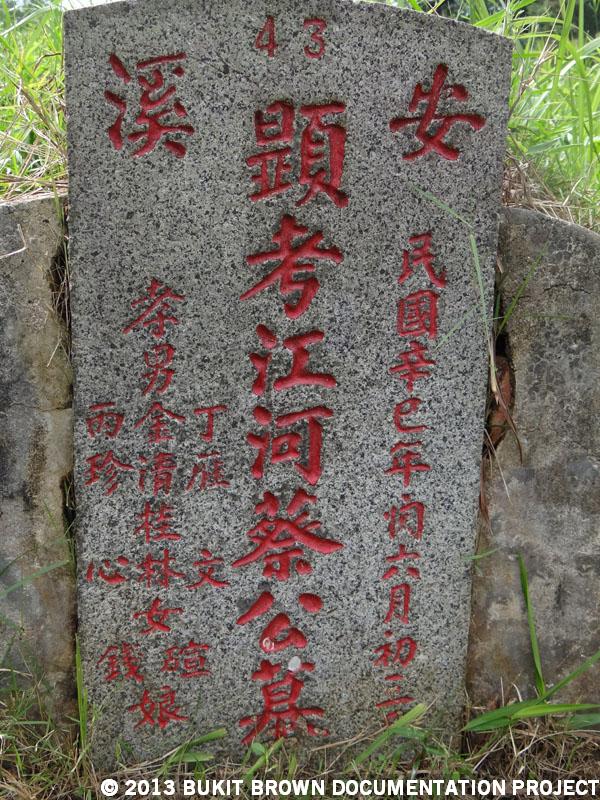 43
安溪
民國辛巳年閏六月初
顕考江河蔡公墓
丁雁 文 瑄
孝男金清桂林女娘
雨珍 心 錢
© 2013 BUKIT BROWN DOCUMENTATION PROJECT